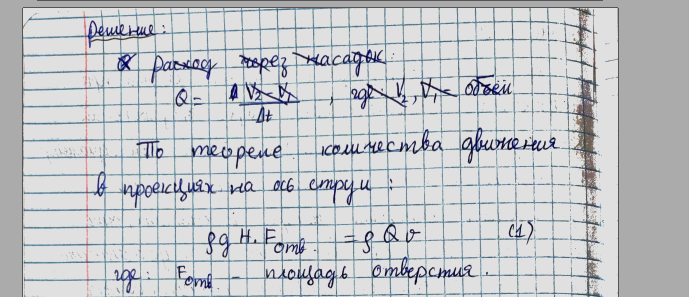 Решение:
Расход через насадок:
Q = V₂ - V₁ / Δt , где V₂, V₁ - объем
По теореме количества движения
в проекциях на ось струи:
ρgH·Fотв. = ρQv (1)
где: Fотв - площадь отверстия.